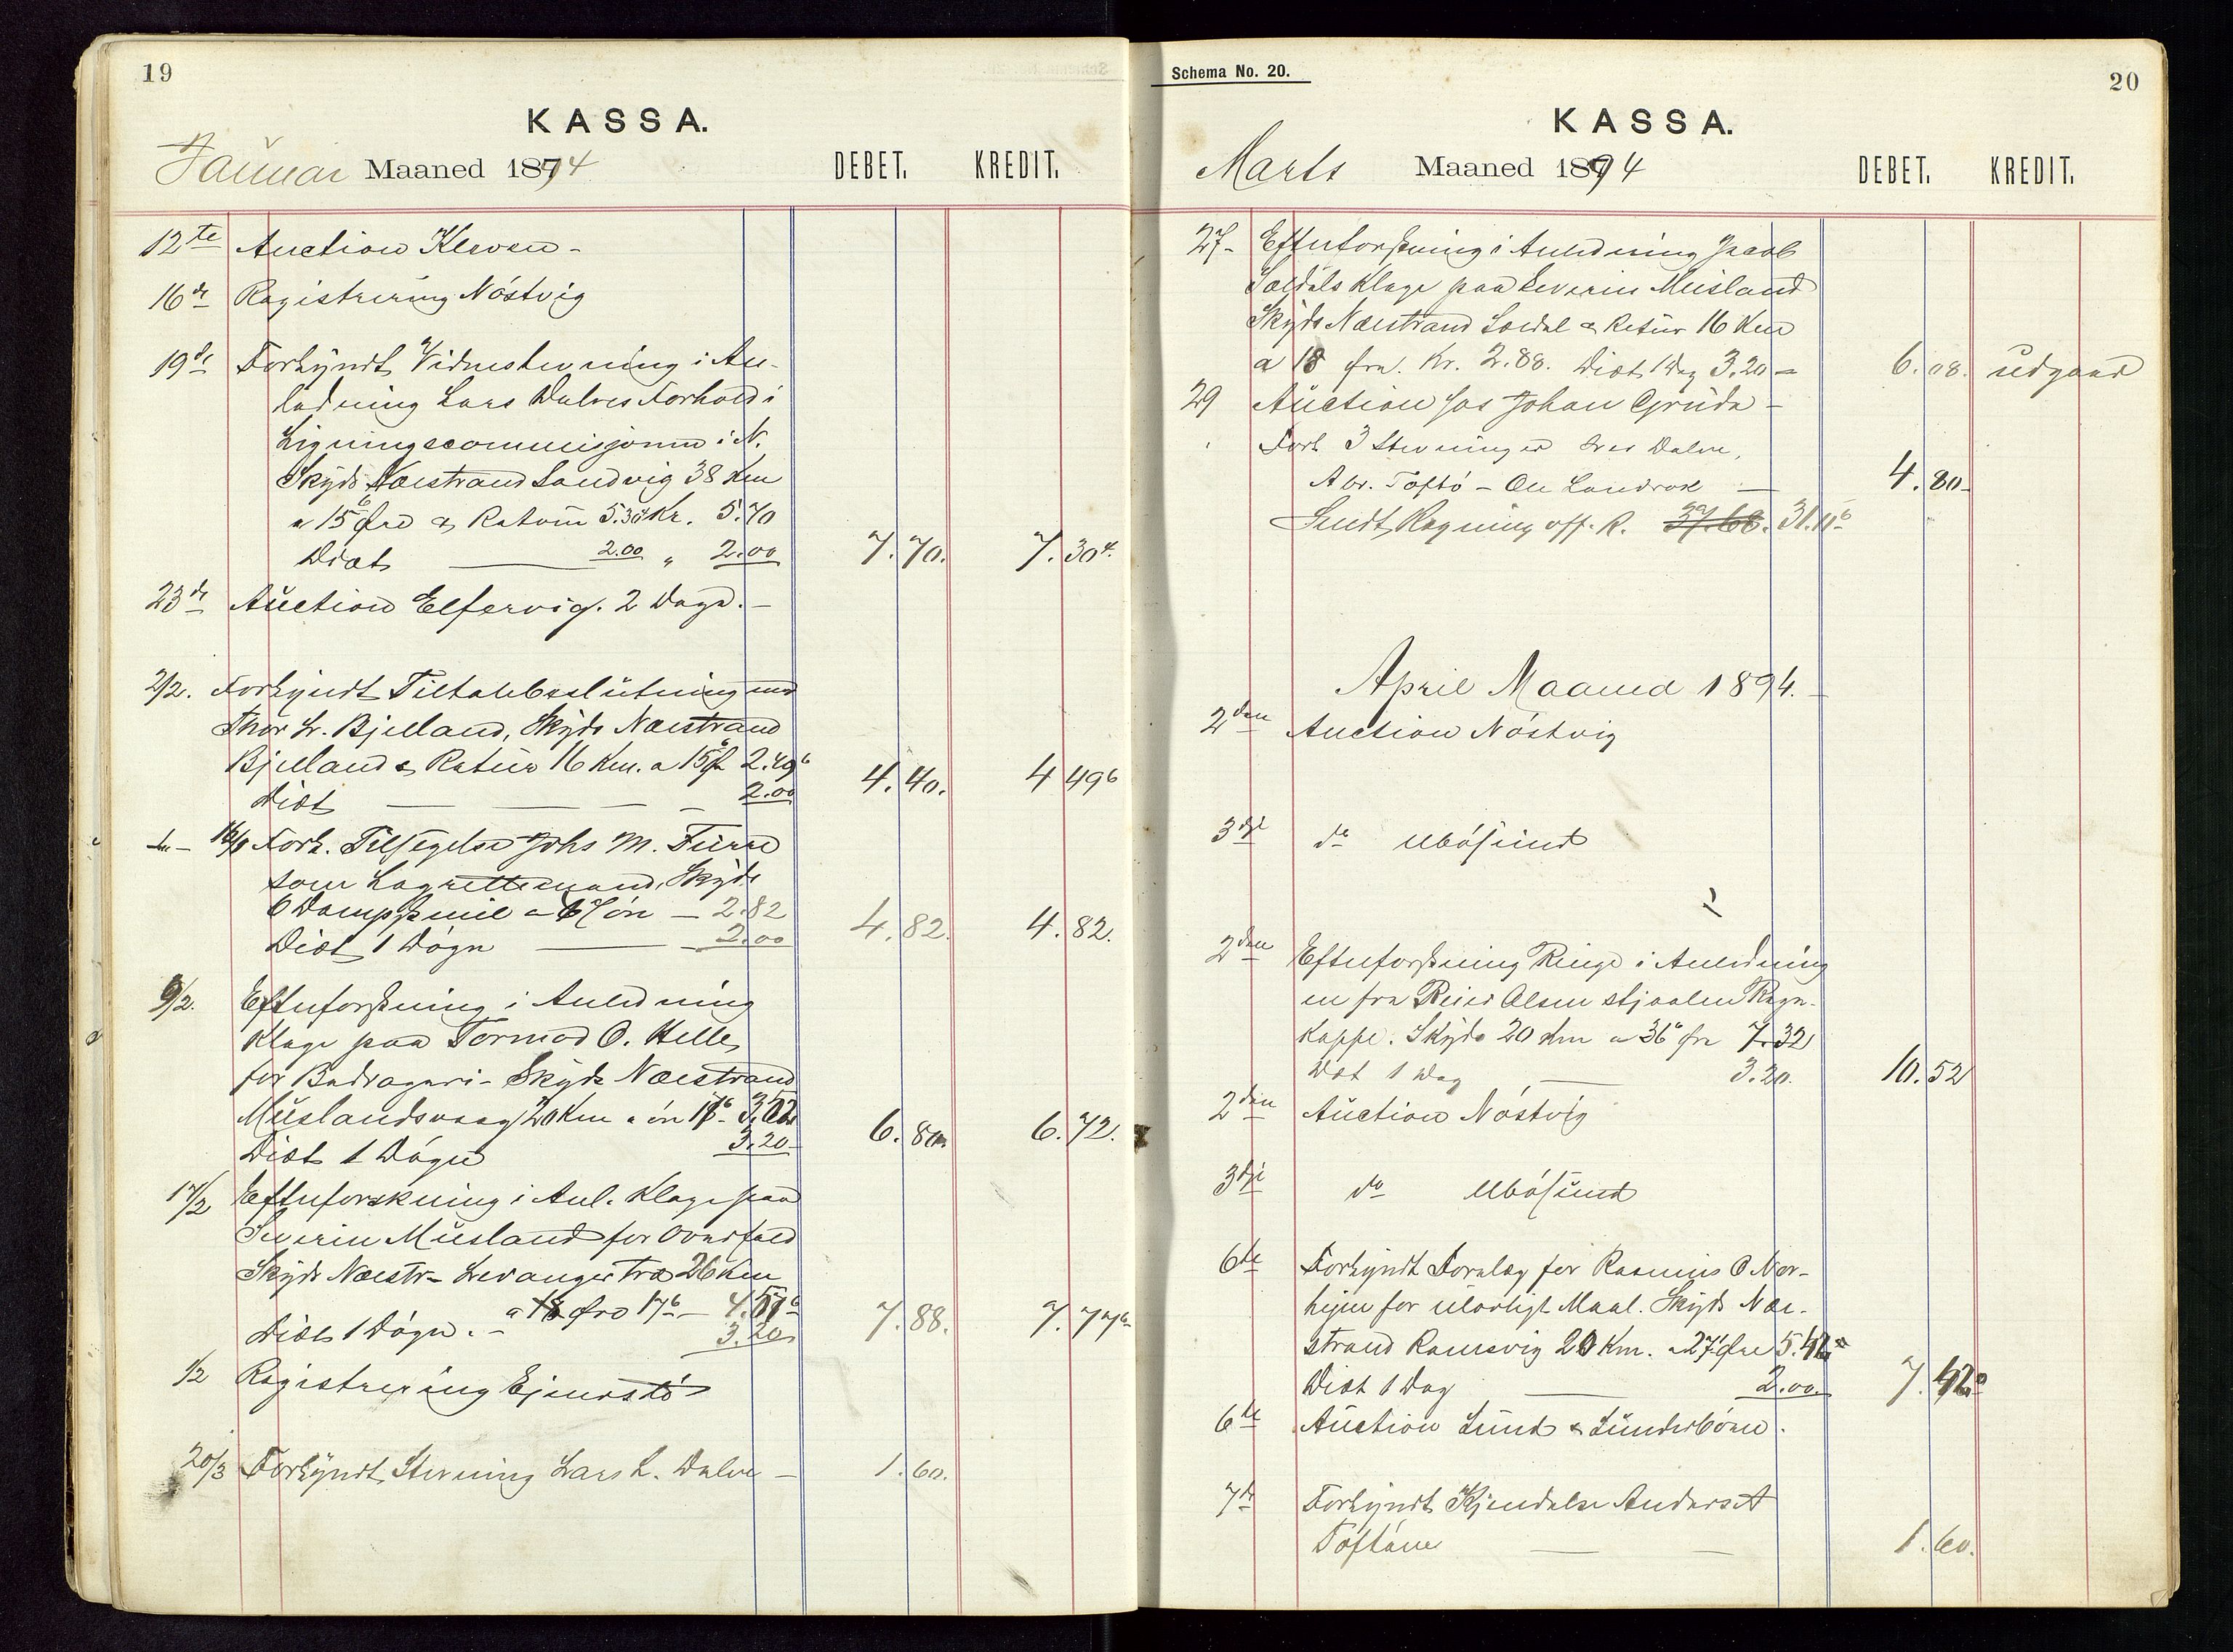 19
KASSA.
Januar Maaned 1894
DEBET. KREDIT.
12te Auction Kleven -
16de Registrering Nóstvig
19de Forkyndt Vidnestevning i An-
ledning Lars Dalves Forhold i
Ligningscommisjonen i N.
Skyds Næstrand Sandvig 38 Km
a 15 Øre & Retour 5.30⁴ Kr. 5.70
Diæt 2.00 " 2.00 7.70. 7.30⁴
23de Auction Elfervig. 2 Dage. -
2/2. Forkyndt Tiltalebeslutning mod
Thor Lr. Bjelland, Skyds Næstrand
Bjelland & Retur 16 Km. a 15⁶ Ør 2.49⁶
Diæt 2.00 4.40. 4 49⁶
Fork. Tilsigelse Johs M. Fiirre
som Lagrettemand, Skyds
6 Dampskmil a 47 øre - 2.82
Diæt 1 Døgn 2.00 4.82. 4.82.
9/2. Efterforskning i Anledning
Klage paa Tormod O. Helle
for Bedrageri - Skyds Næstrand
Muslandsvaag 20 Km a øre 17⁶ 3.52
Diæt 1 Døgn 3.20 6.80 6.72.
17/2 Efterforskning i Anl. Klage paa
Severin Musland for Overfald
Skyds Næstr - Levanger tra 26 Km
a 18 Øre 17⁶ - 4.57⁶
Diæt 1 Døgn. - 3.20 7.88. 7.77⁶
1/2 Registrering Ejenestø
20/3 Forkyndt Stevning Lars L. Dalve - 1.60.
Schema No. 20.
20
KASSA.
Marts Maaned 1894
DEBET. KREDIT.
27 - Efterforskning i Anledning Jacob
Soldals Klage paa Severin Musland
Skyds Næstrand Soldal & Retur 16 Km
a 18 Øre. Kr. 2.88. Diæt 1 Dag 3.20 - 6.08. udgaar
29 Auction hos Johan Grude -
Fork 3 Stevninger Lars Dalve,
Abr. Toftó - Ole Landrak 4.80 -
Sendt Regning off. R. 37.68. 31.11⁶
April Maaned 1894. -
2den Auction Nóstvig
3dje do Ubósund
2den Efterforskning Ringe i Anledning
en fra Reier Olsen stjaalen Regn-
kappe. Skyds 20 Km a 36⁶ Øre 7.32
Diæt 1 Dag 3.20. 10.52
2den Auction Nóstvig
3dje do Ubósund
6te Forkyndt Forelæg for Rasmus O Nor-
hejm for ulovligt Maal. Skyds Næ-
strand Ramsvig 20 Km. a 27¹ Øre 5.42
Diæt 1 Dag 2.00. 7.42
6te Auction Lund & Sunderbóen.
7de Forkyndt Kjendelse Anders A
Toftóne 1.60.